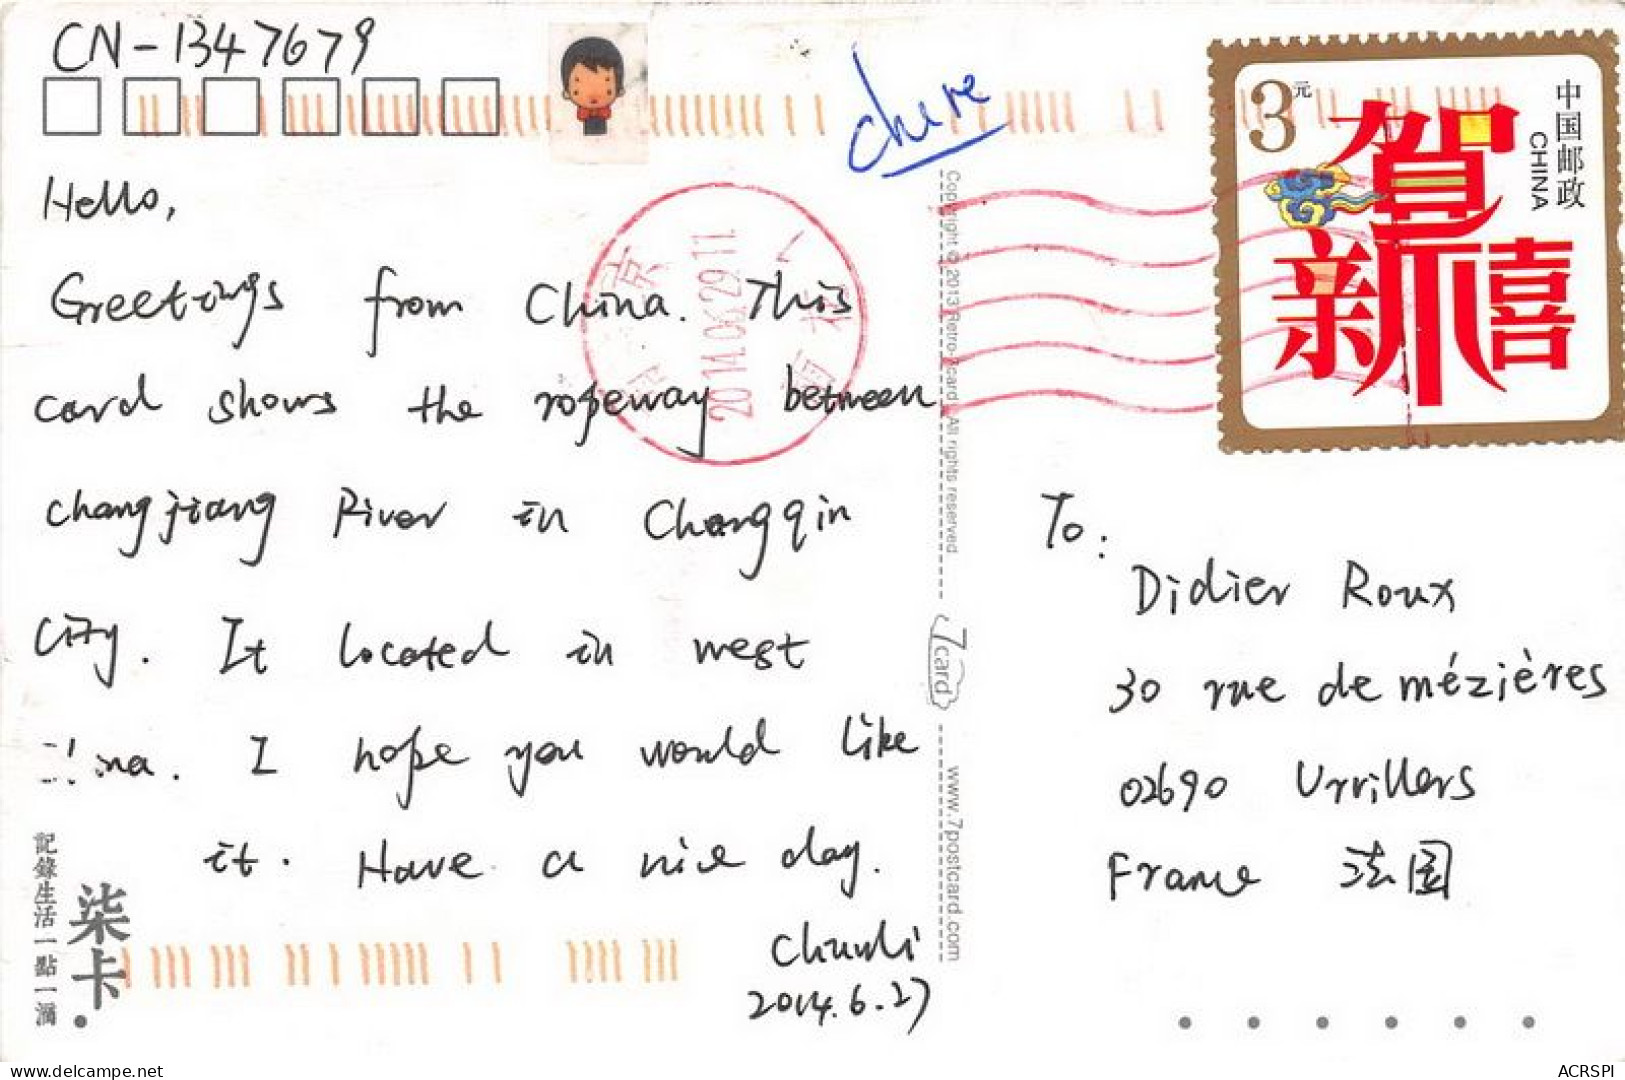 CN-1347679
chine
Hello,
Greetings from China. This
card shows the ropeway between
changjiang River in Chongqin
City. It located in west
ina. I hope you would like
it. Have a nice day.
Chunli
2014.6.27
2014.06.29.11
北京
3元
中国邮政
CHINA
贺
新禧
Copyright © 2013 Retro-7card. All rights reserved
7card
www.7postcard.com
To:
Didier Roux
30 rue de mézières
02690 Urvillers
France 法国
記錄生活一點一滴
柒卡
delcampe.net
ACRSPI